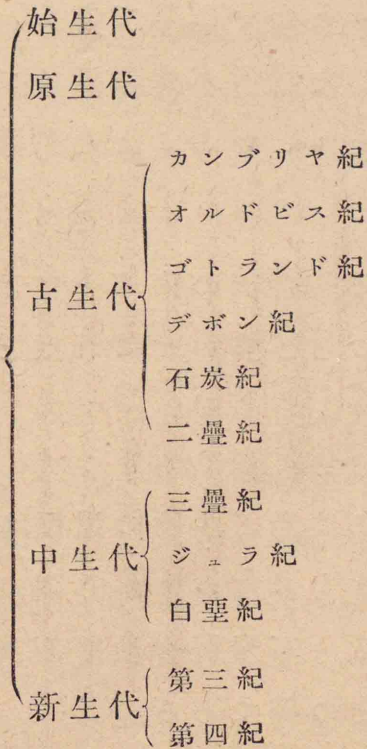 始生代
原生代
古生代
カンブリヤ紀
オルドビス紀
ゴトランド紀
デボン紀
石炭紀
二疊紀
中生代
三疊紀
ジュラ紀
白堊紀
新生代
第三紀
第四紀